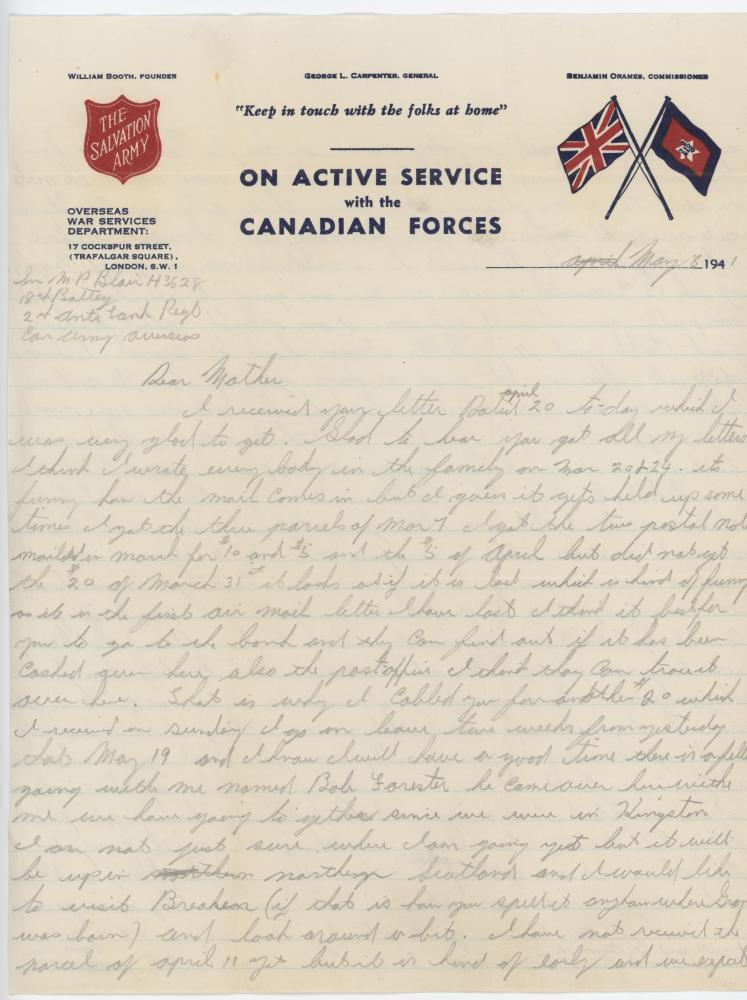 WILLIAM BOOTH, FOUNDER
GEORGE L. CARPENTER, GENERAL
BENJAMIN ORAMES, COMMISSIONER
THE
SALVATION
ARMY
"Keep in touch with the folks at home"
ON ACTIVE SERVICE
with the
CANADIAN FORCES
OVERSEAS
WAR SERVICES
DEPARTMENT:
17 COCKSPUR STREET,
(TRAFALGAR SQUARE),
LONDON, S.W. 1
april May 6 1941
M P Blair H3628
18th Battey
2nd Anti Tank Regt
Can Army Overseas
Dear Mother
I received your letter Dated april 20 to-day which I
was very glad to get. Glad to hear you got all my letters
I think I wrote every body in the family on Mar 20 & 24. its
funny how the mail comes in but I guess it gets held up some
times I got the three parcels of Mar 7 I got the two postal not
mailed in march for $10 and $5 and the $5 of April but did not get
the $20 of March 31st it looks as if it is lost which is kind of funny
as it is the first air mail letter I have lost I think it best for
you to go to the bank and they can find out if it has been
cashed over here also the post office I think they can trace it
over here. That is why I Cabled you for another $20 which
I received on Sunday I go on leave two weeks from yesterday
that May 19 and I know I will have a good time there is a fello
going with me named Bob Forester he came over here withe
me we have going to gether since we were in Kingston
I am not just sure where I am going yet but it will
be up in northern northern Scotland and I would like
to visit (if that is how you spell it anyhow where
was born) and look around a bit. I have not received the
parcel of april 11 yet but it is kind of early and we expect